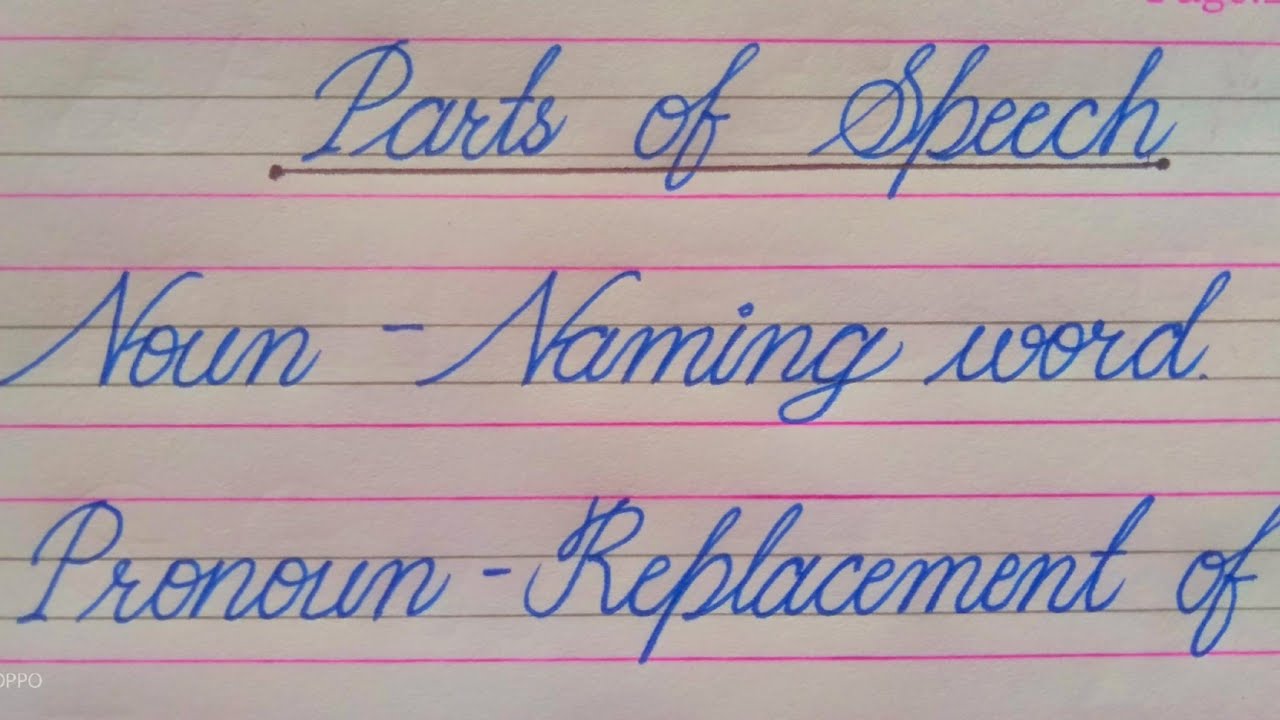 Parts of Speech
Noun - Naming word.
Pronoun - Replacement of
OPPO